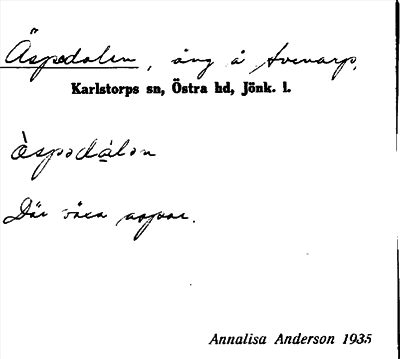 Äspedalen, äng å Svenarp,
Karlstorps sn, Östra hd, Jönk. l.
Där växa aspar.
Annalisa Anderson 1935